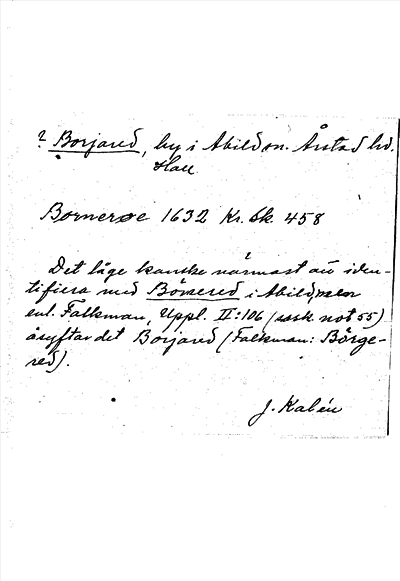 ? Borjared, by i Abild sn. Årstad hd.
Hall.
Bornerøe 1632 Kr. Sk. 458
Det låge kanske närmast att iden-
tifiera med Börsered i Abild, men
enl. Falkman, Uppl. II:106 (särsk. not 55)
åsyftar det Borjared (Falkman: Börge-
red).
J. Kalén